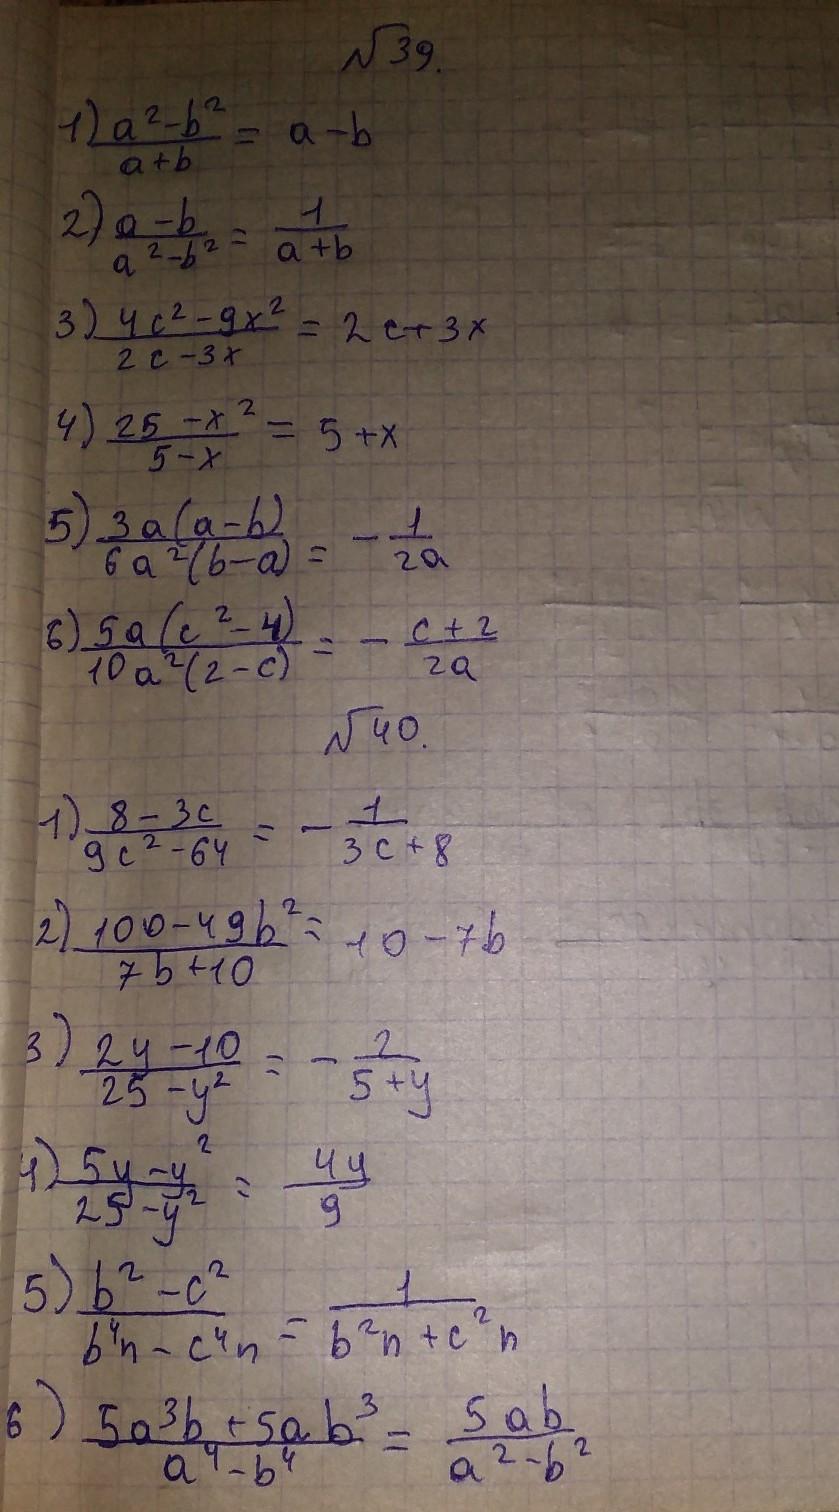 №39.
1) (a²-b²)/(a+b) = a-b
2) (a-b)/(a²-b²) = 1/(a+b)
3) (4c²-9x²)/(2c-3x) = 2c+3x
4) (25-x²)/(5-x) = 5+x
5) (3a(a-b))/(6a²(b-a)) = -1/(2a)
6) (5a(c²-4))/(10a²(2-c)) = -(c+2)/(2a)
№40.
1) (8-3c)/(9c²-64) = -1/(3c+8)
2) (100-49b²)/(7b+10) = 10-7b
3) (2y-10)/(25-y²) = -2/(5+y)
4) (5y-y²)/(25-y²) = 4y/9
5) (b²-c²)/(b⁴n-c⁴n) = 1/(b²n+c²n)
6) (5a³b+5ab³)/(a⁴-b⁴) = 5ab/(a²-b²)